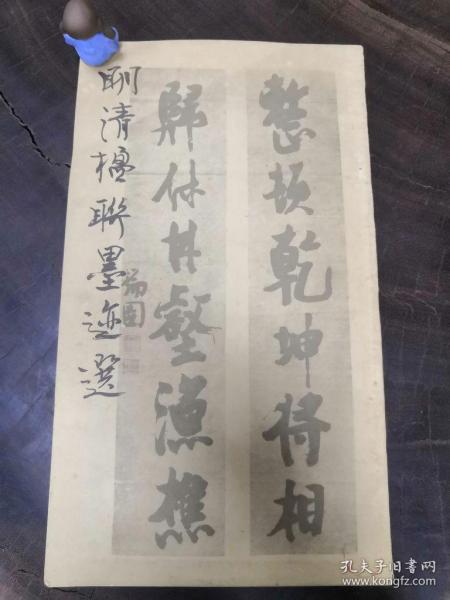 整顿乾坤将相
歸休林壑漁樵
瑞图
明清楹聯墨迹選
孔夫子旧书网
www.kongfz.com